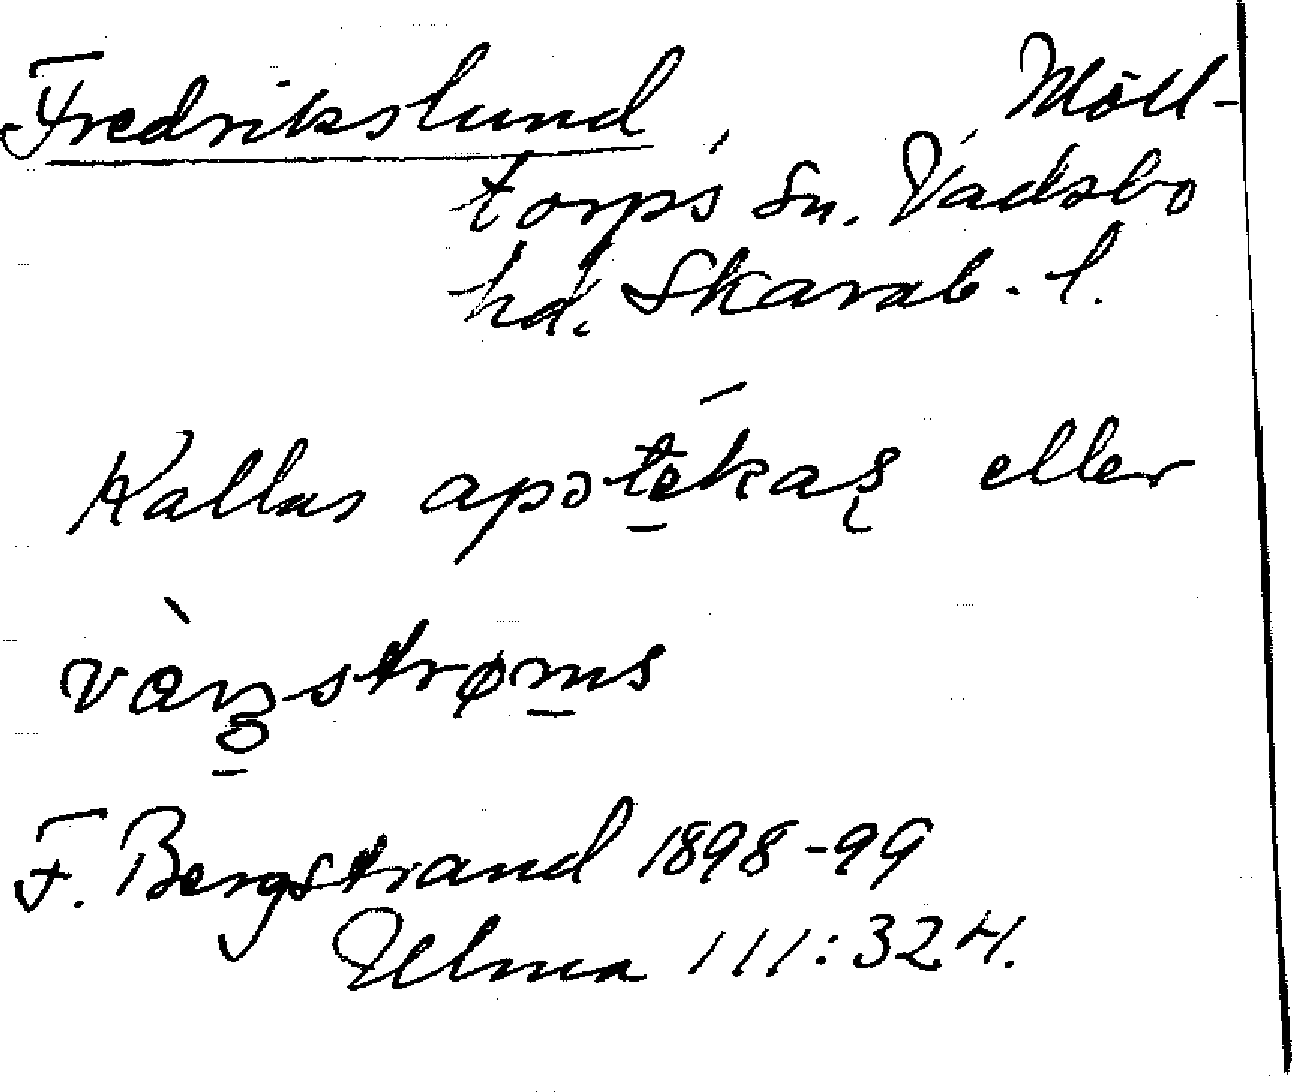 Fredrikslund, Möll-
torps sn. Vadsbo
hd. Skarab. l.
Kallas apotékas eller
strøms
F. Bergstrand 1898-99
Ulma 111:324.